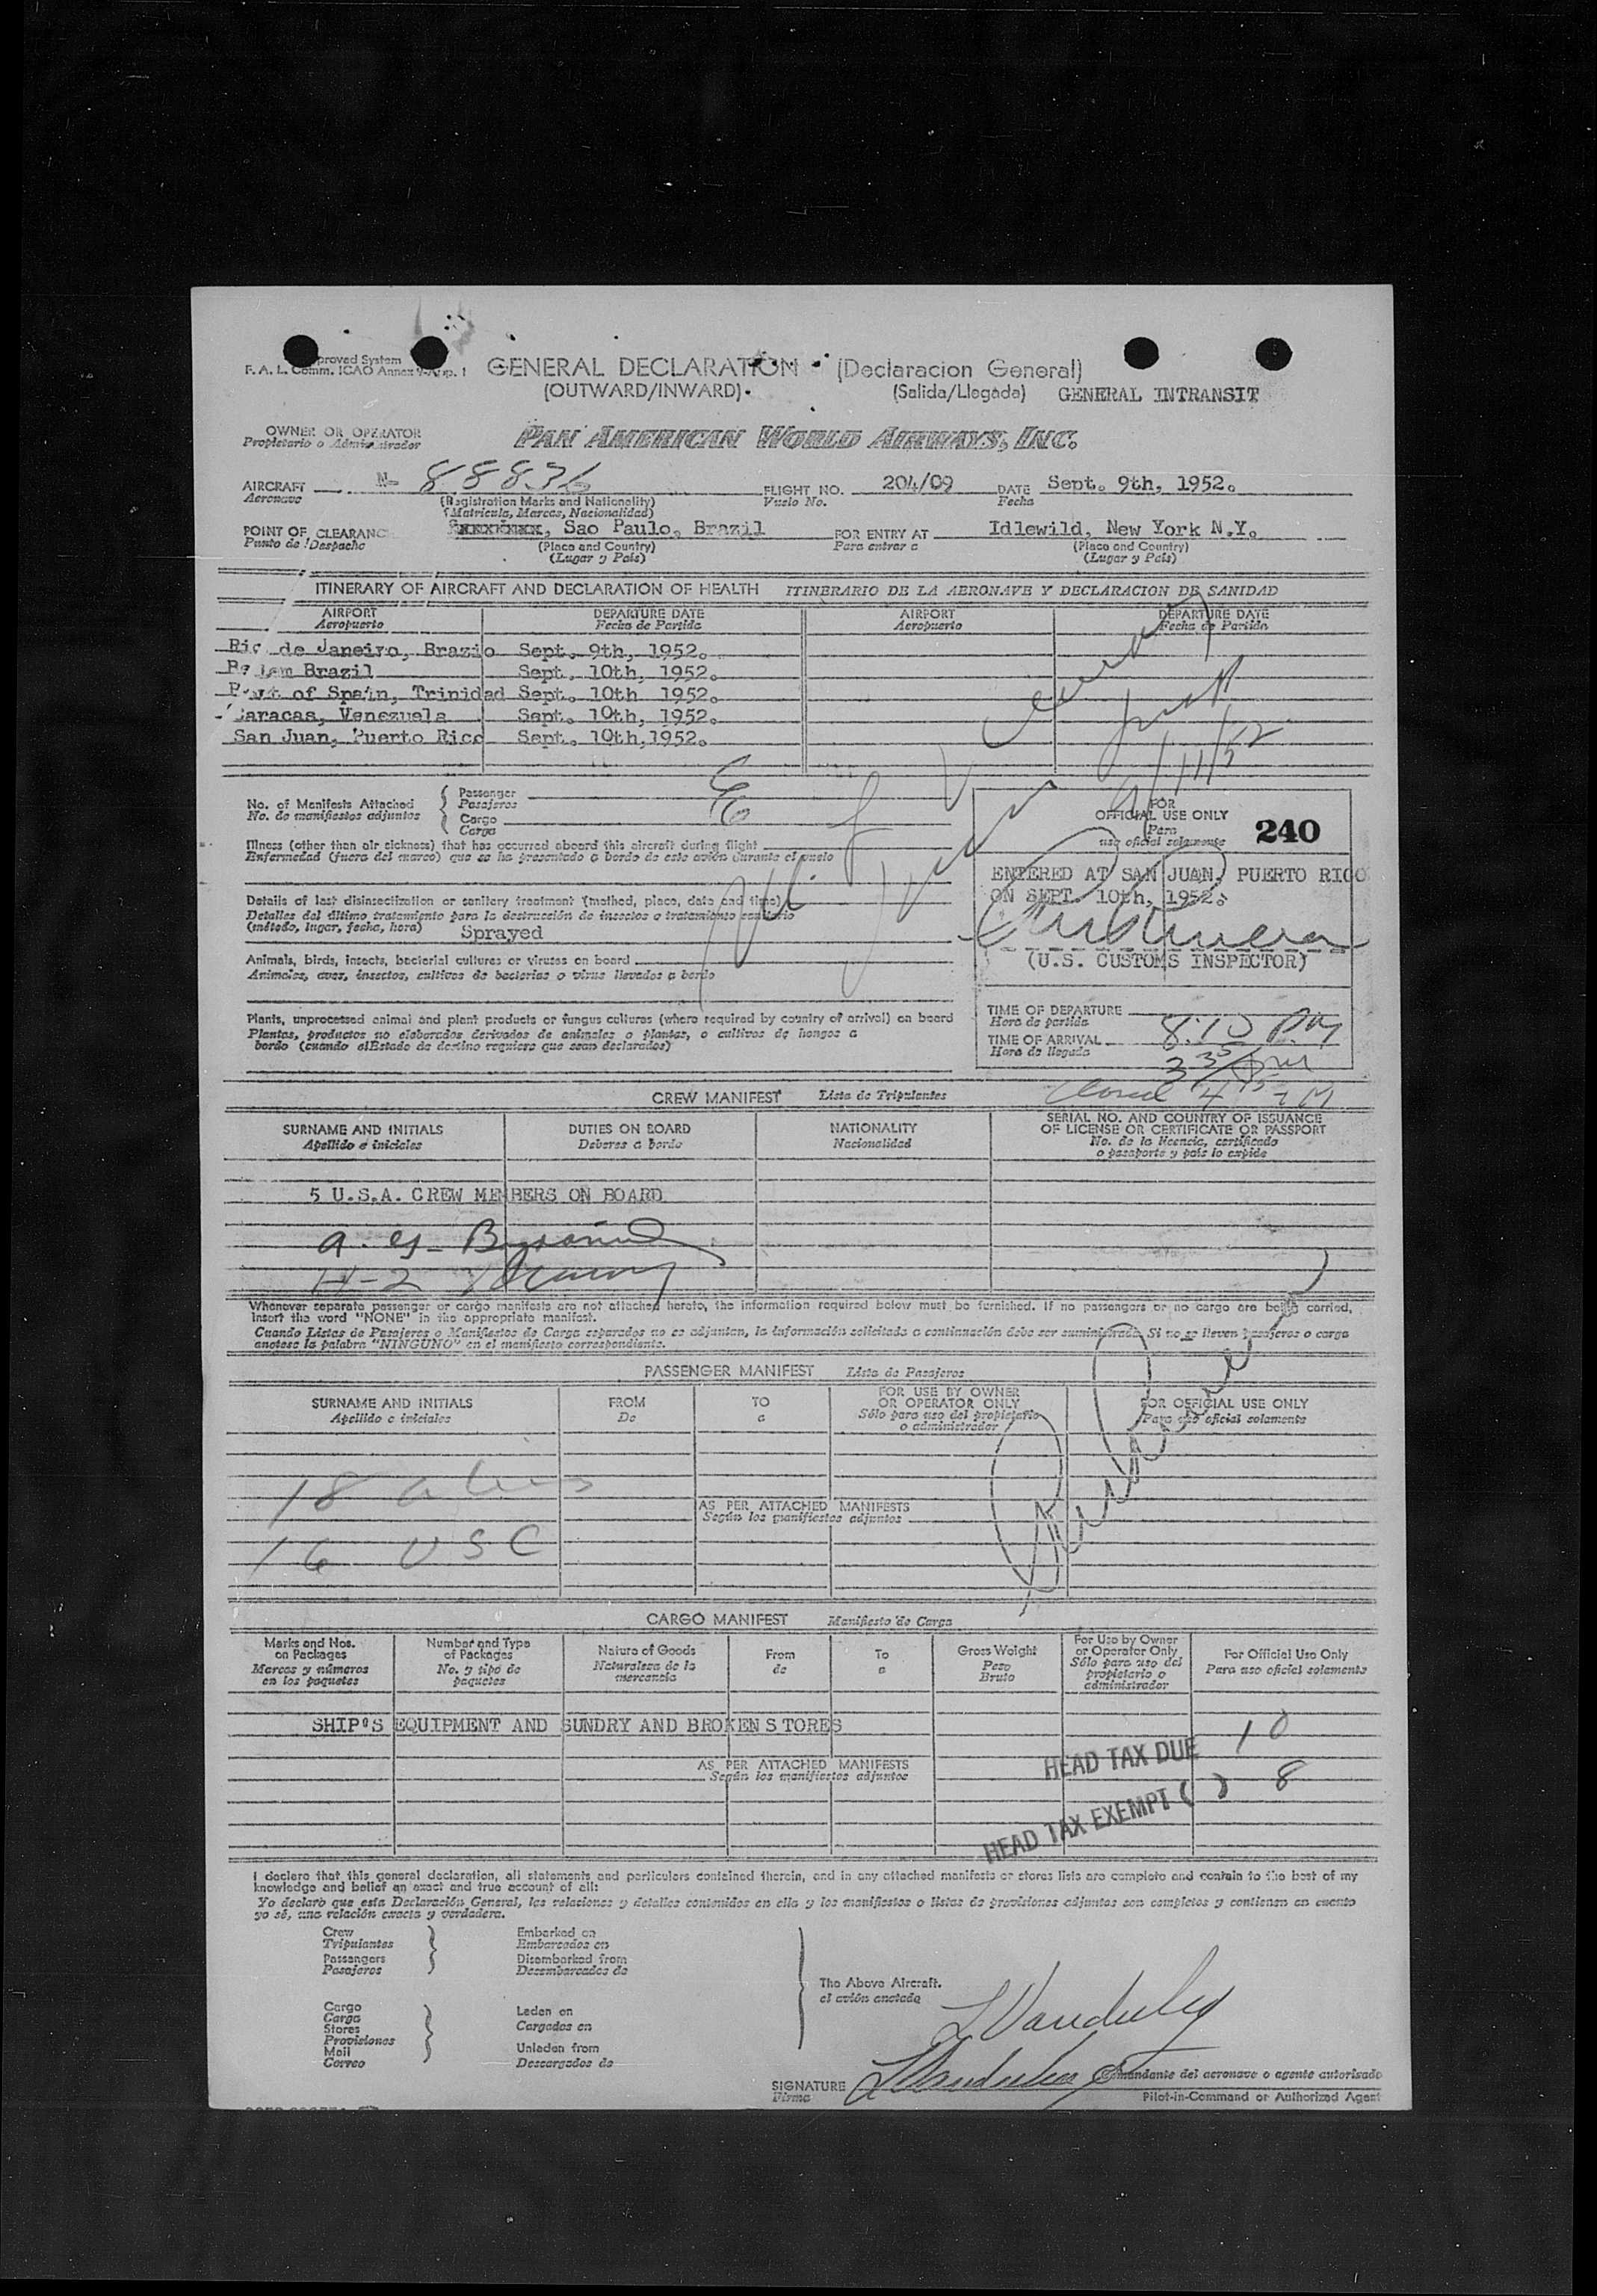 proved System
F. A. L. Comm. ICAO Annex 9-App. 1
GENERAL DECLARATION - (Declaracion General)
(OUTWARD/INWARD). (Salida/Llegada) GENERAL INTRANSIT
OWNER OR OPERATOR
Propietario o Administrador
PAN AMERICAN WORLD AIRWAYS, INC.
AIRCRAFT N- FLIGHT NO. 204/09 DATE Sept. 9th, 1952.
Aeronave (Registration Marks and Nationality) Vuelo No. Fecha
(Matricula, Marcas, Nacionalidad)
POINT OF CLEARANC Sao Paulo, Brazil FOR ENTRY AT Idlewild, New York N.Y.
Punto de Despacho (Place and Country) Para entrar a (Place and Country)
(Lugar y Pais) (Lugar y Pais)
ITINERARY OF AIRCRAFT AND DECLARATION OF HEALTH ITINERARIO DE LA AERONAVE Y DECLARACION DE SANIDAD
AIRPORT DEPARTURE DATE AIRPORT DEPARTURE DATE
Aeropuerto Fecha de Partida Aeropuerto Fecha de Partida
Rio de Janeiro, Brazio Sept. 9th, 1952.
Belem Brazil Sept. 10th, 1952.
Port of Spain, Trinidad Sept. 10th 1952.
Caracas, Venezuela Sept. 10th, 1952.
San Juan, Puerto Rico Sept. 10th,1952.
9/11/52
No. of Manifests Attached
No. de manifiestos adjuntos
Passenger
Pasajeros
Cargo
Carga
FOR
OFFICIAL USE ONLY
Para
uso oficial solamente
240
Illness (other than air sickness) that has occurred aboard this aircraft during flight
Enfermedad (fuera del mareo) que se ha presentado a bordo de este avión durante el vuelo
ENTERED AT SAN JUAN, PUERTO RICO
ON SEPT. 10th, 1952.
(U.S. CUSTOMS INSPECTOR)
Details of last disinsectization or sanitary treatment (method, place, date and time)
Detalles del último tratamiento para la destrucción de insectos o tratamiento sanitario
(método, lugar, fecha, hora) Sprayed
Animals, birds, insects, bacterial cultures or viruses on board
Animales, aves, insectos, cultivos de bacterias o virus llevados a bordo
Plants, unprocessed animal and plant products or fungus cultures (where required by country of arrival) on board
Plantas, productos no elaborados derivados de animales o plantas, o cultivos de hongos a
bordo (cuando elEstado de destino requiere que sean declarados)
TIME OF DEPARTURE
Hora de partida 8:10 PM
TIME OF ARRIVAL
Hora de llegada 3 30 PM
CREW MANIFEST Lista de Tripulantes
SURNAME AND INITIALS DUTIES ON BOARD NATIONALITY SERIAL NO. AND COUNTRY OF ISSUANCE
Apellido e iniciales Deberes a bordo Nacionalidad OF LICENSE OR CERTIFICATE OR PASSPORT
No. de la licencia, certificado
o pasaporte y país lo expide
5 U.S.A. CREW MEMBERS ON BOARD
Whenever separate passenger or cargo manifests are not attached hereto, the information required below must be furnished. If no passengers or no cargo are being carried,
insert the word "NONE" in the appropriate manifest.
Cuando Listas de Pasajeros o Manifiestos de Carga separados no se adjuntan, la información solicitada a continuación debe ser suministrada. Si no se lleven pasajeros o carga
anotese la palabra "NINGUNO" en el manifiesto correspondiente.
PASSENGER MANIFEST Lista de Pasajeros
SURNAME AND INITIALS FROM TO FOR USE BY OWNER OR OPERATOR ONLY FOR OFFICIAL USE ONLY
Apellido e iniciales De a Sólo para uso del propietario o administrador Para uso oficial solamente
18 aliens
AS PER ATTACHED MANIFESTS
Según los manifiestos adjuntos
16 USC
CARGO MANIFEST Manifiesto de Carga
Marks and Nos. on Packages Number and Type of Packages Nature of Goods From To Gross Weight For Use by Owner or Operator Only For Official Use Only
Marcas y números en los paquetes No. y tipo de paquetes Naturaleza de la mercancia de a Peso Bruto Sólo para uso del propietario o administrador Para uso oficial solamente
SHIP'S EQUIPMENT AND SUNDRY AND BROKEN STORES
AS PER ATTACHED MANIFESTS
Según los manifiestos adjuntos
HEAD TAX DUE 10
HEAD TAX EXEMPT ( ) 8
I declare that this general declaration, all statements and particulars contained therein, and in any attached manifests or stores lists are complete and contain to the best of my
knowledge and belief an exact and true account of all:
Yo declaro que esta Declaración General, las relaciones y detalles contenidos en ella y los manifiestos o listas de provisiones adjuntos son completos y contienen en cuanto
yo sé, una relación exacta y verdadera.
Crew Embarked on
Tripulantes Embarcados en
Passengers Disembarked from
Pasajeros Desembarcados de
The Above Aircraft.
el avión anotado
Cargo Laden on
Carga Cargados en
Stores
Provisiones
Mail Unladen from
Correo Descargados de
SIGNATURE Comandante del aeronave o agente autorizado
Firma Pilot-in-Command or Authorized Agent